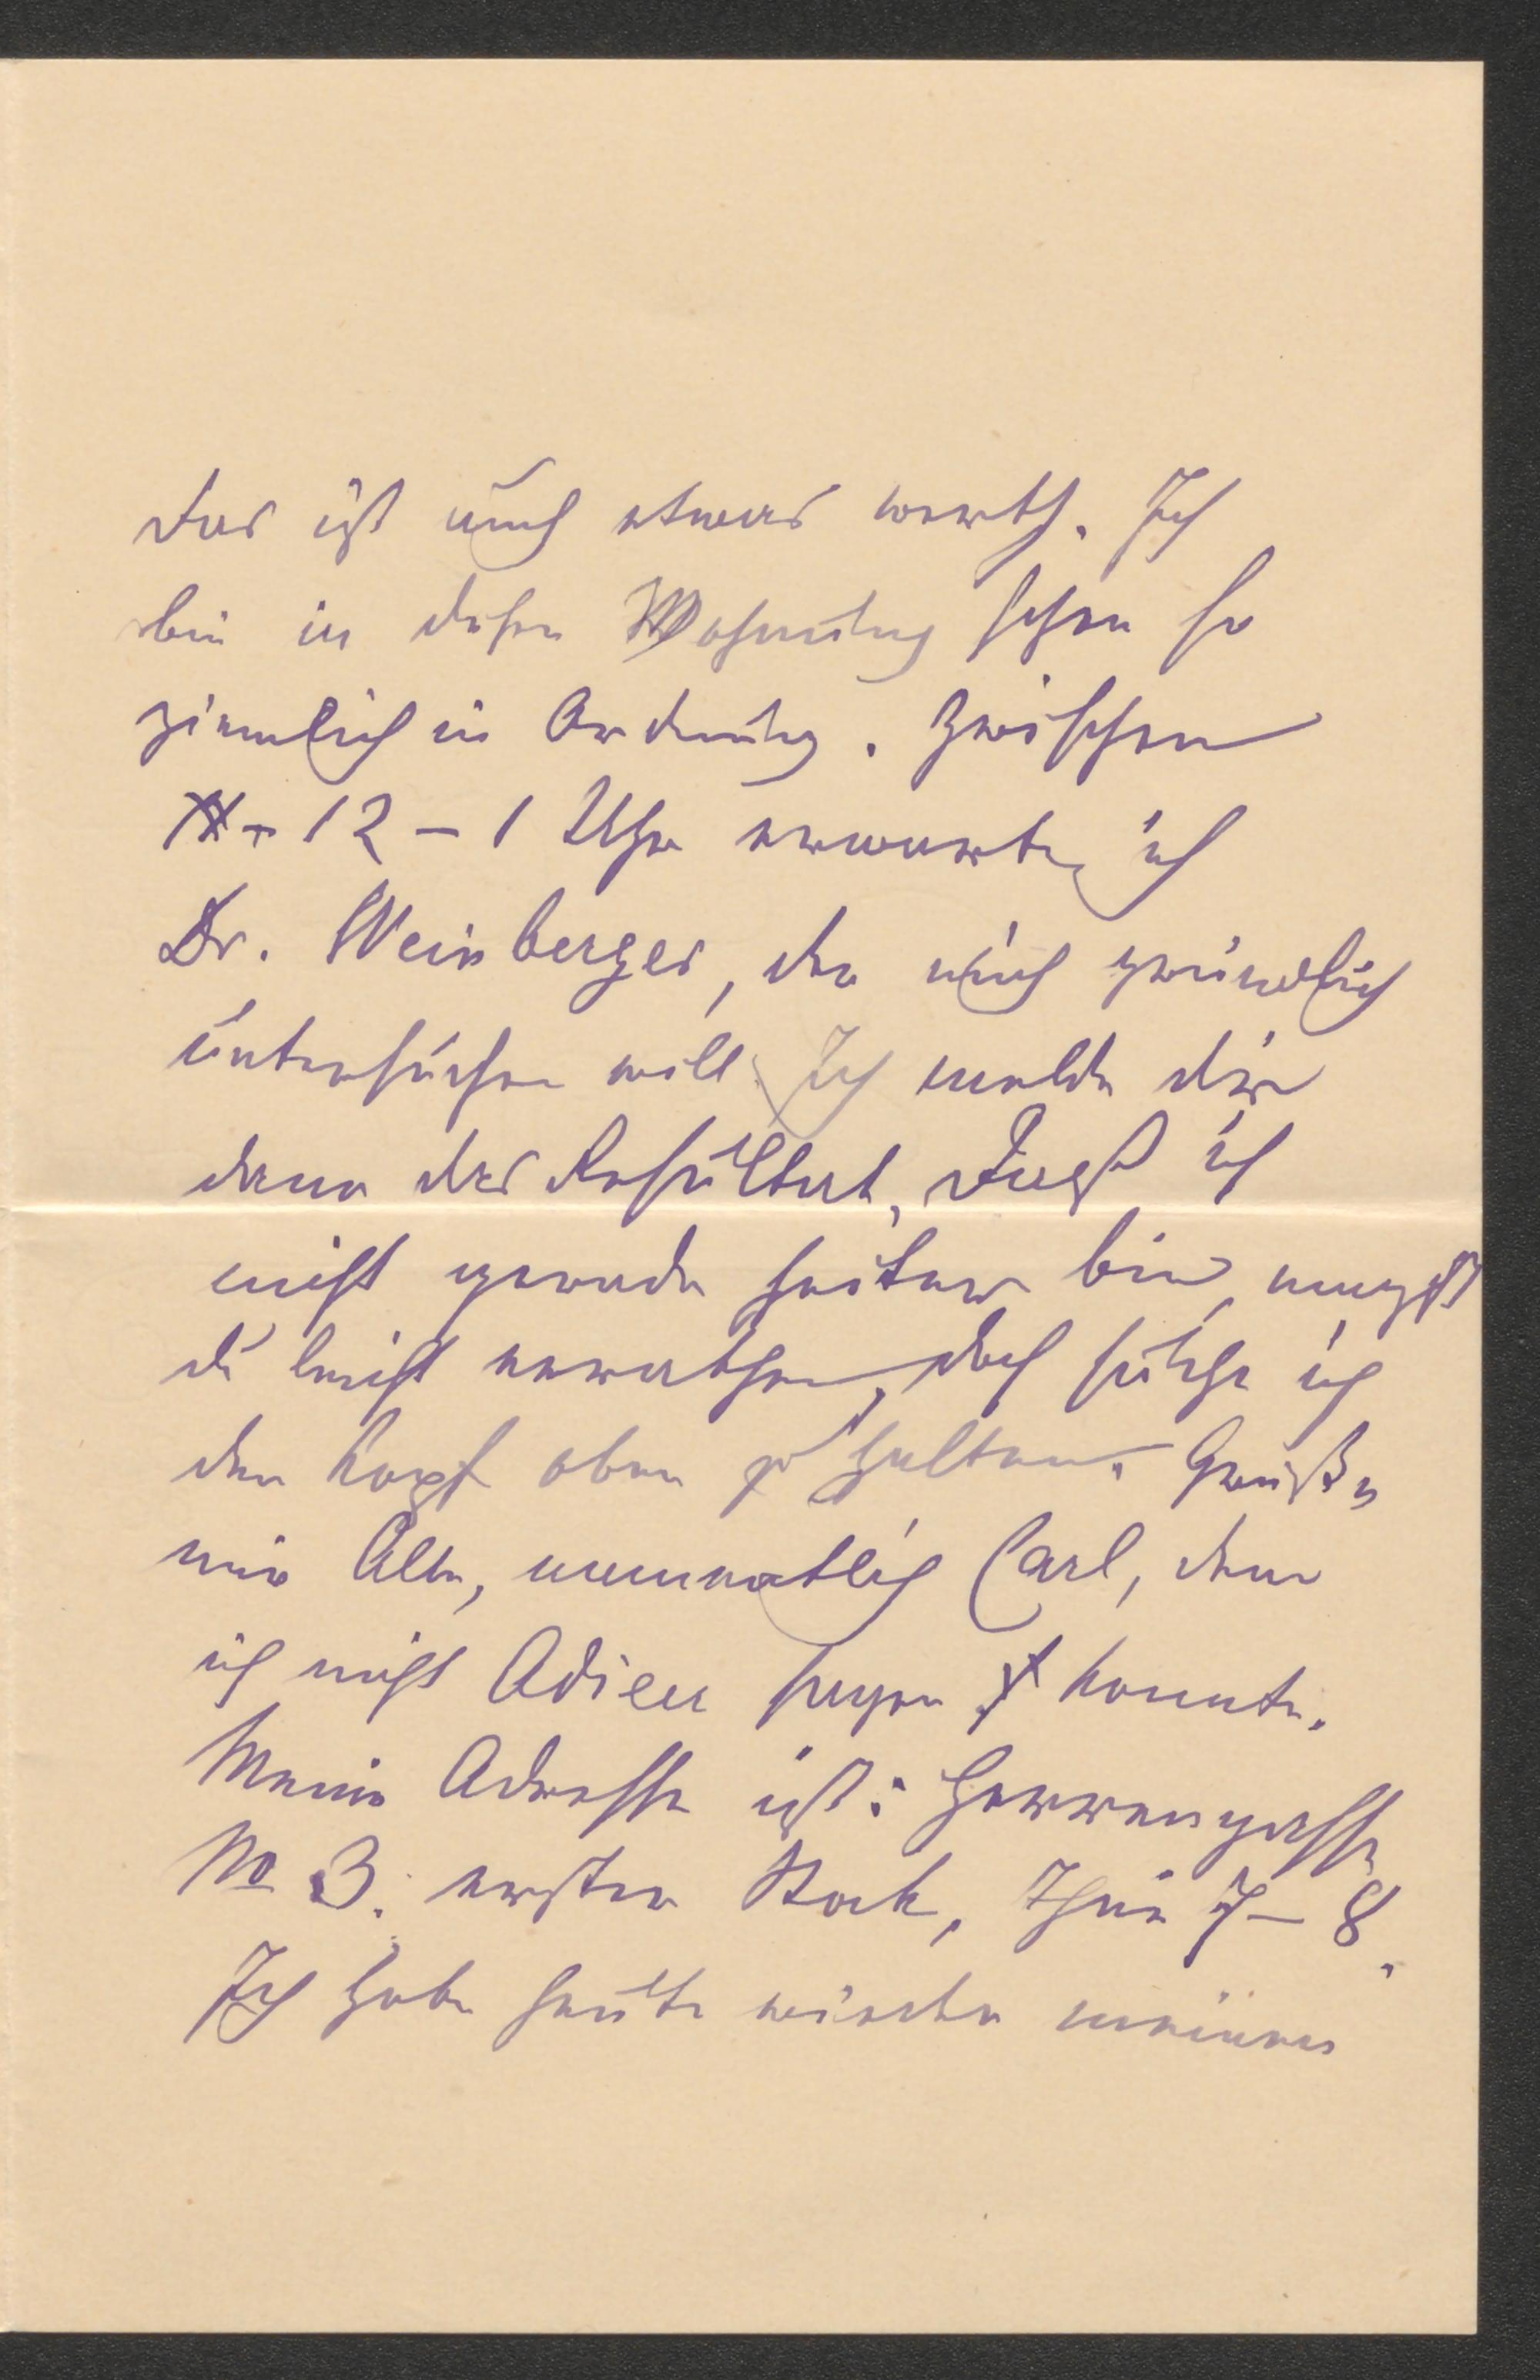 das ist auch etwas werth. Ich
bin in dieser Wohnung schon so
ziemlich in Ordnung. Zwischen
12 – 1 Uhr erwarte ich
Dr. Weinberger, der mich gründlich
untersuchen will. Ich melde dir
dann das Resultat, daß ich
nicht gerade heiter bin, magst
du leicht errathen, doch suche ich
den Kopf oben zu halten. Grüße
mir Alle, namentlich Carl, dem
ich nicht Adieu sagen konnte.
Meine Adresse ist: Herrengasse
No 3. erster Stock, Thür 7 – 8.
Ich habe heute wieder meinen